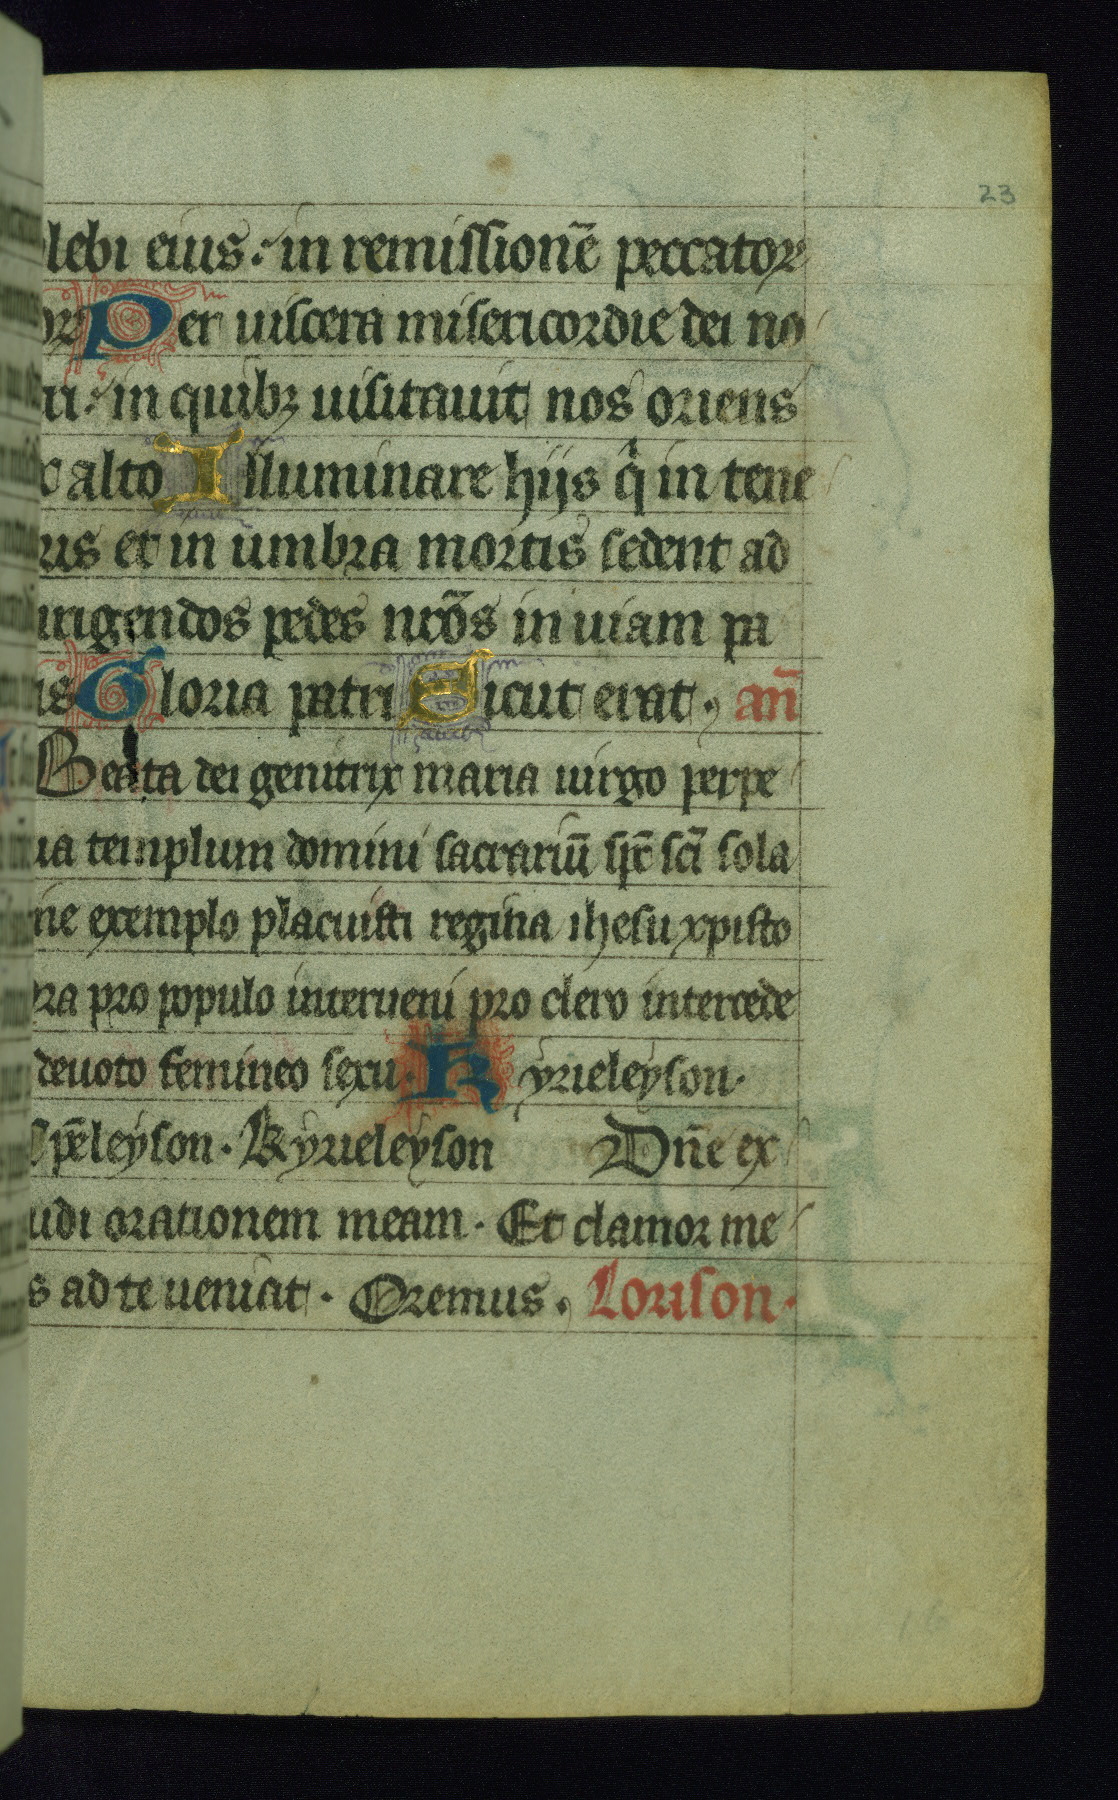 23
lebi eius: in remissionē peccator
Per uiscera misericordie dei no
ri: in quibꝫ uisitauit nos oriens
alto Illuminare hijs q̇ in tene
ris et in umbra mortis sedent ad
irigendos pedes nr̄os in uiam pa
is Gloria patri Sicut erat. an̄
Beata dei genitrix maria uirgo perpe
ua templum domini sacrariū sp̄c sc̄i sola
ne exemplo placuisti regina ihesu xpisto
ra pro populo interueni pro clero intercede
deuoto femineo sexu. Kyrieleyson.
xp̄eleyson. Kyrieleyson Dn̄e ex
udi orationem meam. Et clamor me
s ad te ueniat. Oremus. Lorison.
16